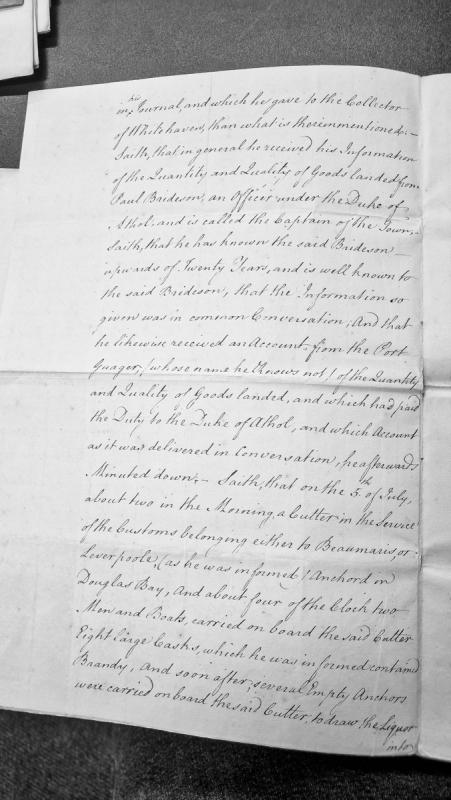 in his Journal, and which he gave to the Collector
of Whitehaven, than what is therein mentioned:—
Saith, that in general he received his Information
of the Quantity and Quality of Goods landed from
Paul Brideson, an Officer under the Duke of
Athol, and is called the Captain of the Town,—
Saith, that he has known the said Brideson—
upwards of Twenty Years, and is well known to
the said Brideson, that the Information so
given was in common Conversation; And that
he likewise received an Account from the Port
Guager, (whose name he Knows not) of the Quantity
and Quality of Goods landed, and which had paid
the Duty to the Duke of Athol, and which Account
as it was delivered in Conversation, he afterwards
Minuted down,— Saith, that on the 5th of July,
about two in the Morning a Cutter in the Service
of the Customs belonging either to Beaumaris, or
Leverpoole, (as he was informed) Anchord in
Douglas Bay, And about four of the Clock two
Men and Boats, carried on board the said Cutter
Eight large Casks, which he was informed contained
Brandy, And soon after, several Empty Anchors
were carried on board the said Cutter, to draw the Liquor
into